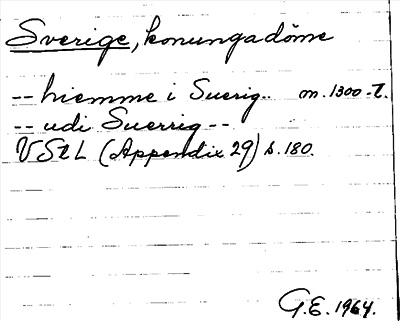 Sverige, konungadöme
-- hiemme i Suerig.. m. 1300-t.
-- udi Suerrig --
VSZL (Appendix 29) s. 180.
G.E. 1964.